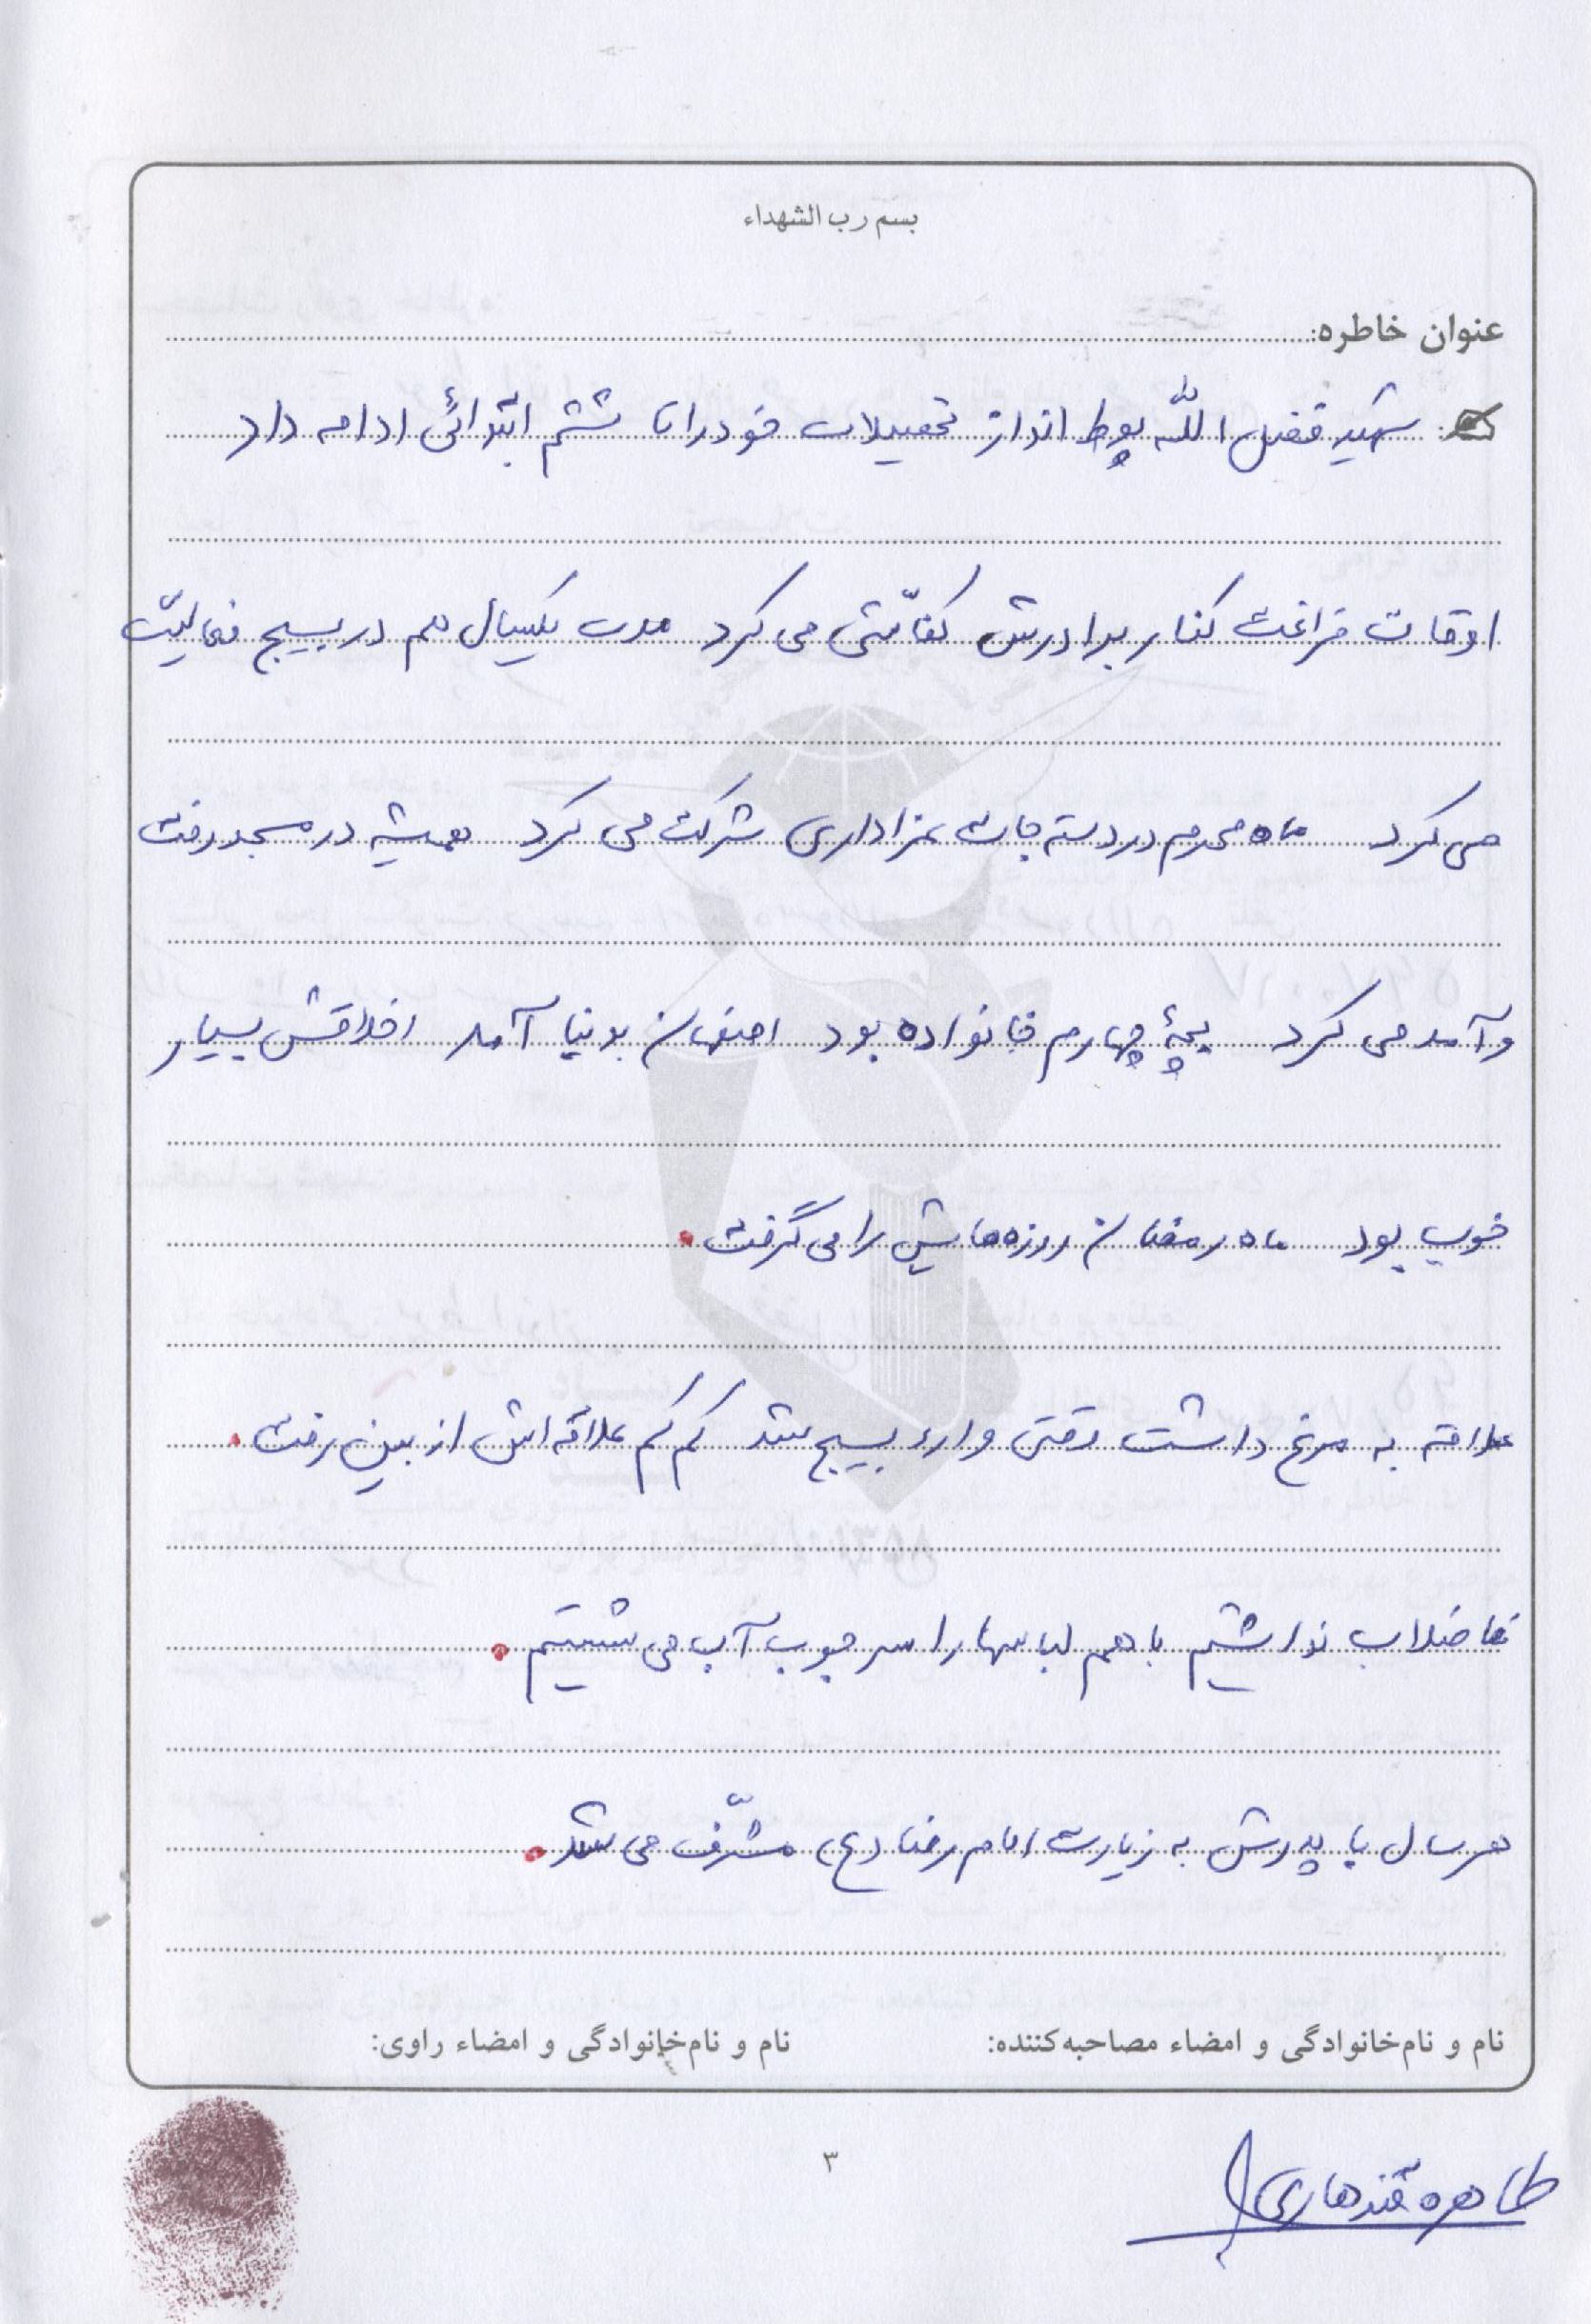 بسم رب الشهداء
عنوان خاطره:
شهید فضل الله پوط انداز تحصیلات خود را تا ششم ابتدائی ادامه داد
اوقات فراغت کنار برادرش کفّاشی می کرد مدت یکسال هم در بسیج فعالیّت
می کرد ماه محرم در دسته جات عزاداری شرکت می کرد همیشه در مسجد رفت
و آمد می کرد بچهٔ چهارم خانواده بود اصفهان بدنیا آمد اخلاقش بسیار
خوب بود ماه رمضان روزه هایش را می گرفت.
علاقه به مرغ داشت وقتی وارد بسیج شد کم کم علاقه اش از بین رفت.
فاضلاب نداشتیم با هم لباسها را سر جوب آب می شستیم.
هر سال با پدرش به زیارت امام رضا (ع) مشرّف می شد.
نام و نام‌خانوادگی و امضاء مصاحبه‌کننده:
نام و نام‌خانوادگی و امضاء راوی:
۳
طاهره قندهاری